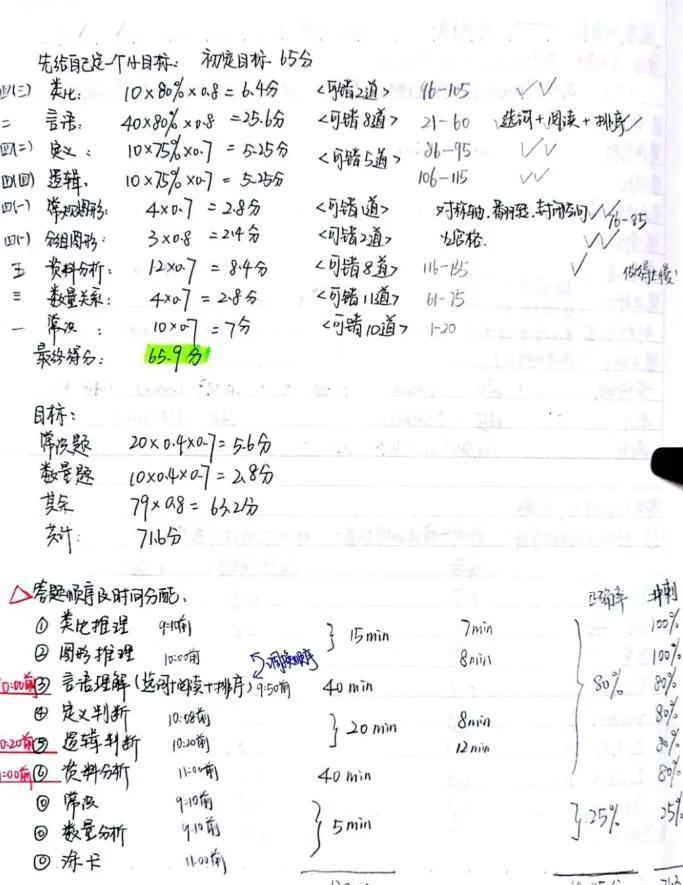 先给自己定一个小目标： 初定目标 65分
四(三) 类比： 10×80%×0.8=6.4分 <可错2道> 96-105 ✓✓
二 言语： 40×80%×0.8=25.6分 <可错8道> 21-60 选词+阅读+排序✓
四(二) 定义： 10×75%×0.7=5.25分 <可错5道> 86-95 ✓✓
四(四) 逻辑： 10×75%×0.7=5.25分 106-115 ✓✓
四(一) 常规图形： 4×0.7=2.8分 <可错1道> 对称轴、封闭空间 ✓✓ 76-85
四(一) 分组图形： 3×0.8=2.4分 <可错2道> ✓✓
五 资料分析： 12×0.7=8.4分 <可错8道> 116-135 ✓ 做得太慢!
三 数量关系： 4×0.7=2.8分 <可错11道> 61-75
一 常识： 10×0.7=7分 <可错10道> 1-20
最终得分： 65.9分
目标：
常识题 20×0.4×0.7=5.6分
数量题 10×0.4×0.7=2.8分
其余 79×0.8=63.2分
共计： 71.6分
△答题顺序及时间分配： 正确率 冲刺
① 类比推理 9:10前 15min 7min 100%
② 图形推理 10:00前 8min 100%
调换顺序
10:00前 ③ 言语理解(选词+阅读+排序) 9:50前 40min 80% 80%
④ 定义判断 10:08前 20min 8min 80%
10:20前 ⑤ 逻辑判断 10:20前 12min 80%
⑥ 资料分析 11:00前 40min 80%
常识 9:10前 5min 25% 25%
数量分析 9:10前
涂卡 11:00前